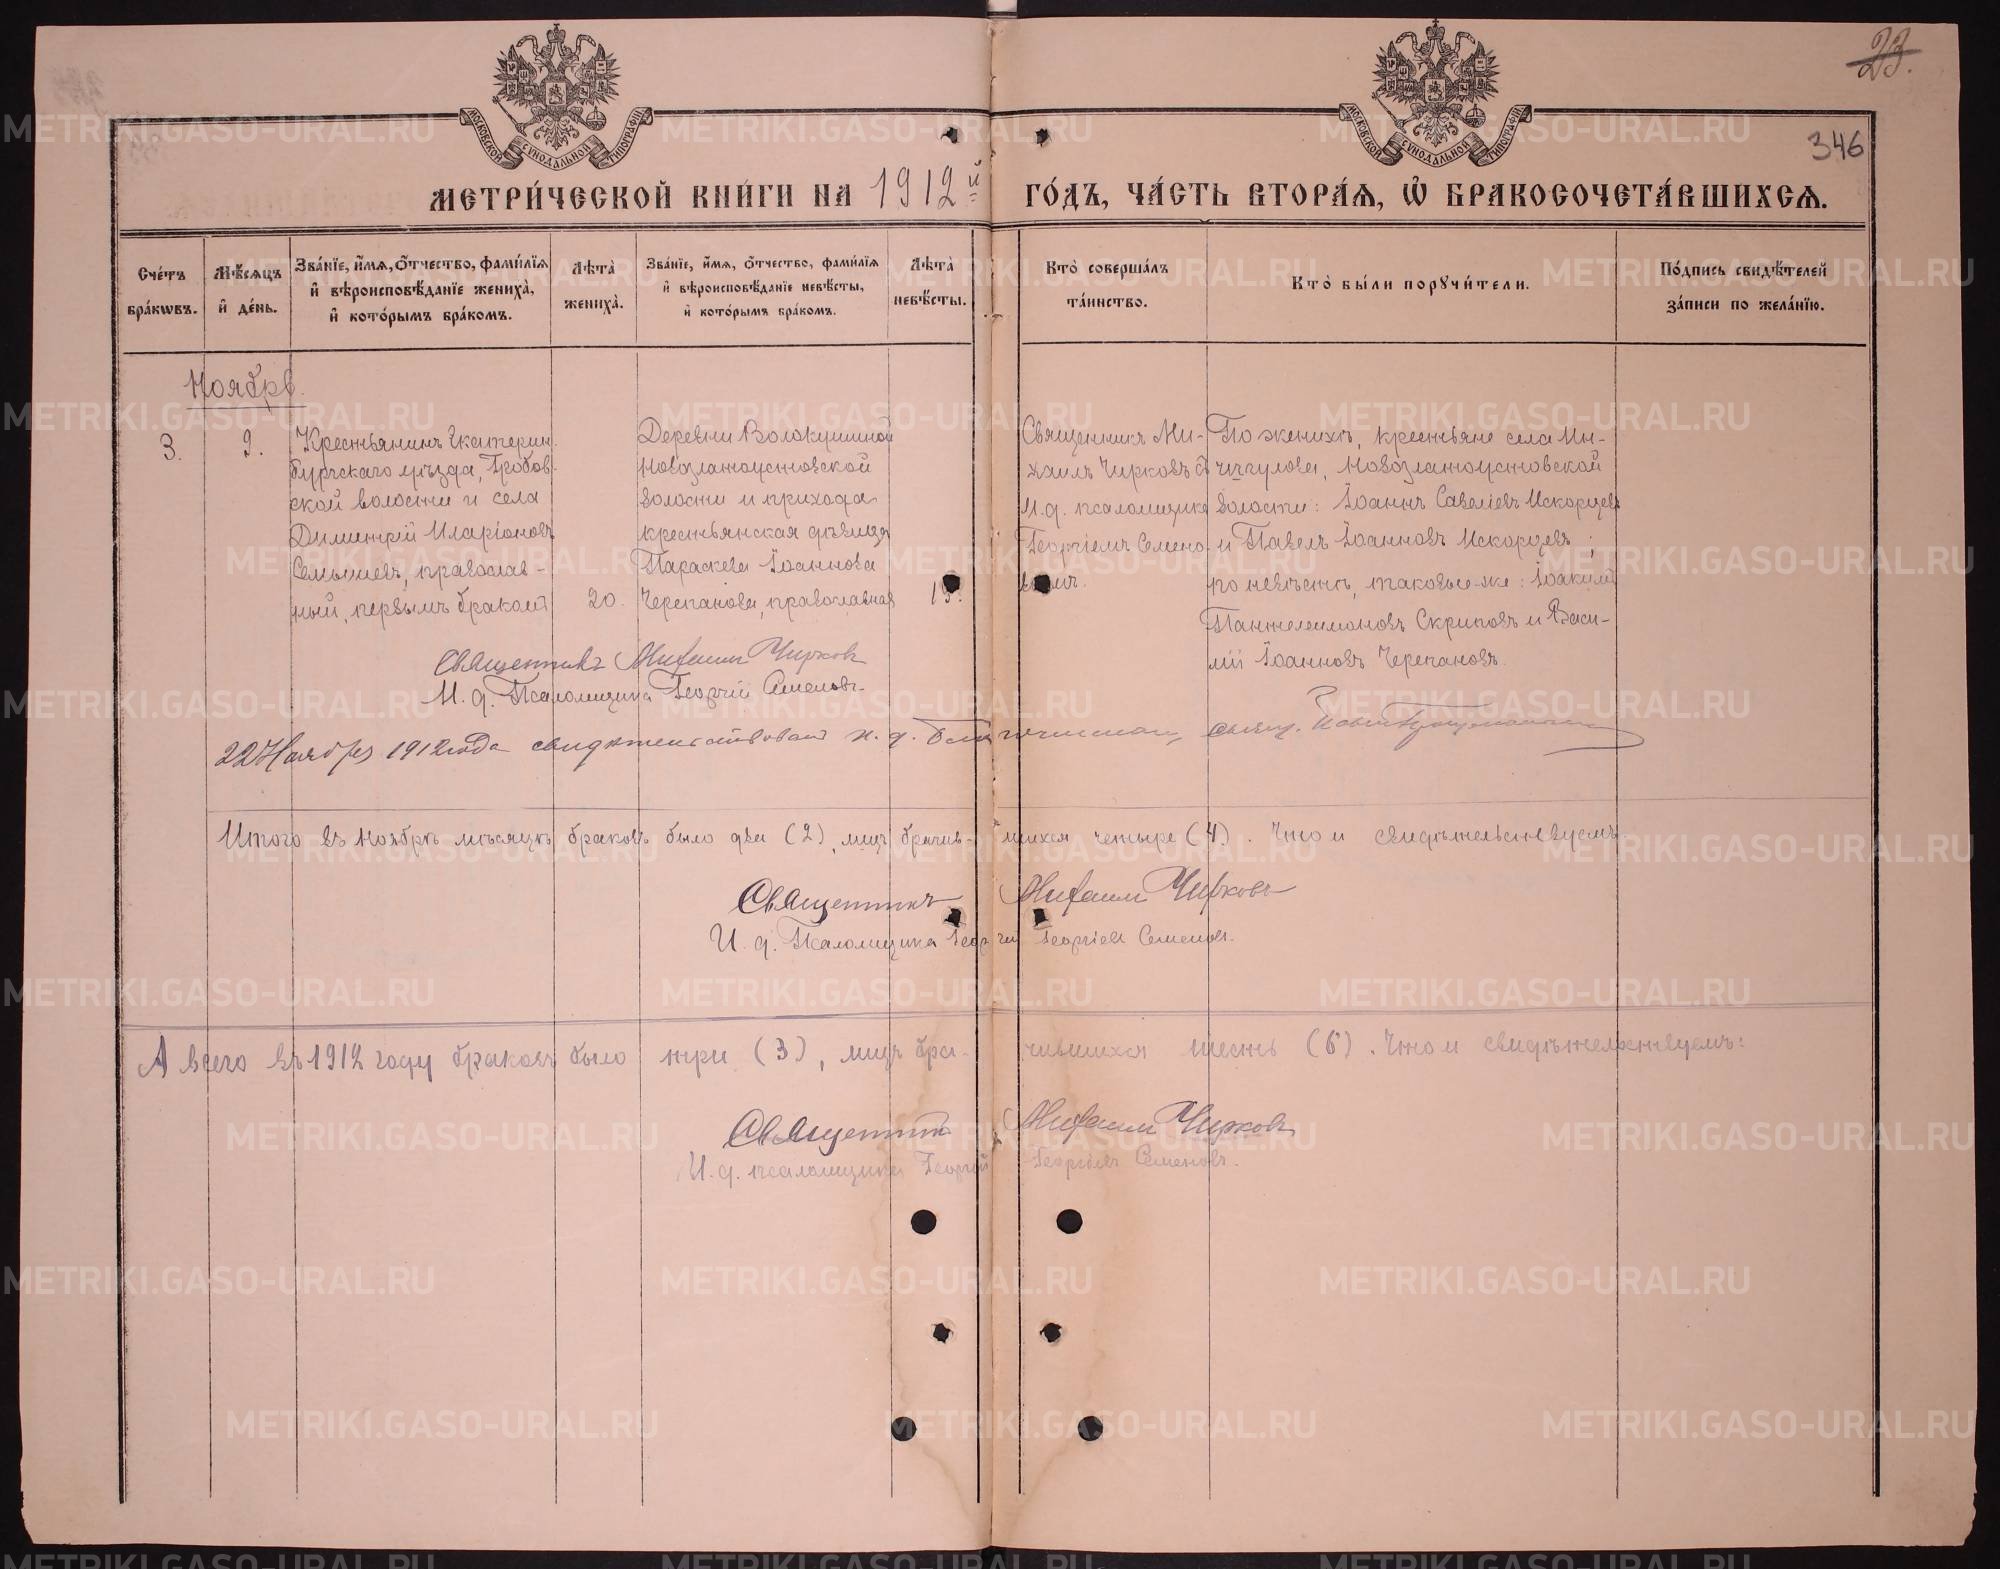 23.
346
МОСКОВСКОЙ СѴНОДАЛЬНОЙ ТИПОГРАФІИ
МОСКОВСКОЙ СѴНОДАЛЬНОЙ ТИПОГРАФІИ
МЕТРИ́ЧЕСКОЙ КНИ́ГИ НА 1912й ГО́ДЪ, ЧА́СТЬ ВТОРА́Я, Ѽ БРАКОСОЧЕТА́ВШИХСЯ.
Сче́тъ бра́кωвъ.
Мѣ́сяцъ и҆ де́нь.
Зва́нїе, и҆́мя, ѻ҆́тчество, фами́лїя и҆ вѣроисповѣ́данїе жениха̀, и҆ кото́рымъ бра́комъ.
Лѣта̀ жениха̀.
Зва́нїе, и҆́мя, ѻ҆́тчество, фами́лїя и҆ вѣроисповѣ́данїе невѣ́сты, и҆ кото́рымъ бра́комъ.
Лѣта̀ невѣ́сты.
Кто̀ соверша́лъ та́инство.
Кто̀ бы́ли порꙋчи́тели.
По́дпись свидѣ́телей за́писи по жела́нїю.
Ноябрь.
3.
9.
Крестьянинъ Екатерин-
бургскаго уѣзда, Гробов-
ской волости и села
Димитрій Иларіоновъ
Семышев, православ-
ный, первымъ бракомъ
20.
Деревни Волокушиной
Новозлатоустовской
волости и прихода
крестьянская дѣвица
Параскева Іоаннова
Черепанова, православная
Священникъ Ми-
хаилъ Чирковъ съ
И. д. псаломщика
Георгіемъ Семено-
вымъ.
По женихѣ, крестьяне села
Новозлатоустовской
волости: Іоаннъ Савеліевъ Искорцевъ
и Павелъ Іоанновъ Искорцевъ;
по невѣстѣ, таковые-же: Іоакимъ
Пантелеимоновъ Скриповъ и Васи-
лій Іоанновъ Черепановъ.
Священникъ Михаилъ Чирковъ
И. д. Псаломщика Георгій Семеновъ.
22 Ноября 1912 года свидетельствовал и. д. Благочиннаго, свящ.
Итого въ ноябрѣ мѣсяцѣ браковъ было два (2), лицъ брачив-шихся четыре (4). Что и свидѣтельствуемъ.
Священникъ Михаилъ Чирковъ
И. д. Псаломщика Георгій Георгіев Семенов.
А всего въ 1912 году браковъ было три (3), лицъ бра-чившихся шесть (6). Что и свидѣтельствуемъ:
Священникъ Михаилъ Чирковъ
И. д. псаломщика Георгій Георгіевъ Семеновъ.
METRIKI.GASO-URAL.RU